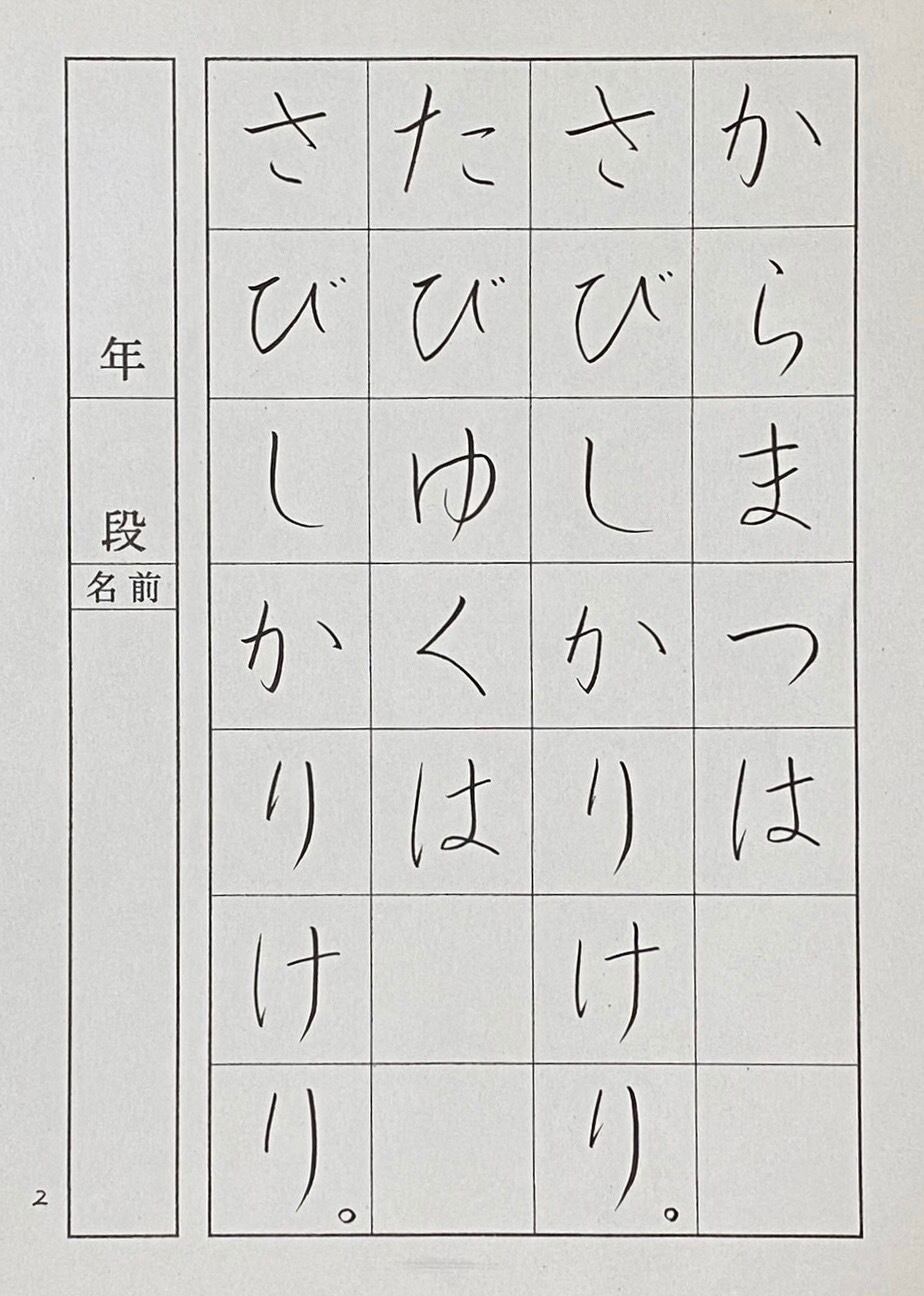 からまつは
さびしかりけり。
たびゆくは
さびしかりけり。
年
段
名前
2